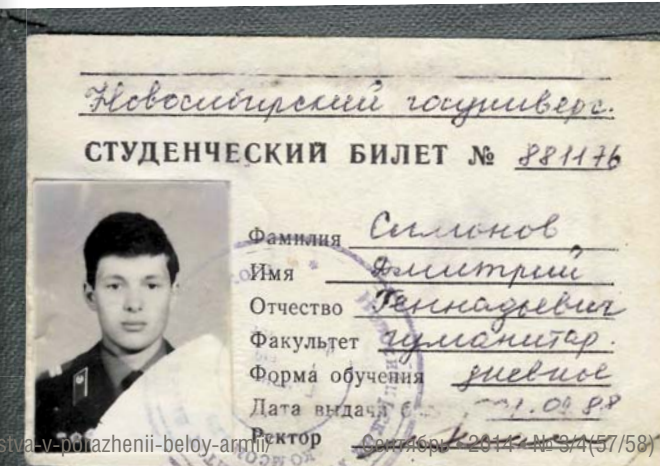 Новосибирский госуниверс.
СТУДЕНЧЕСКИЙ БИЛЕТ № 881176
Фамилия Симонов
Имя Дмитрий
Отчество Геннадьевич
Факультет гуманитар.
Форма обучения дневное
Дата выдачи 1.09.88
Ректор
stva-v-porazhenii-beloy-armii/
Сентябрь • 2014 • № 3/4(57/58)